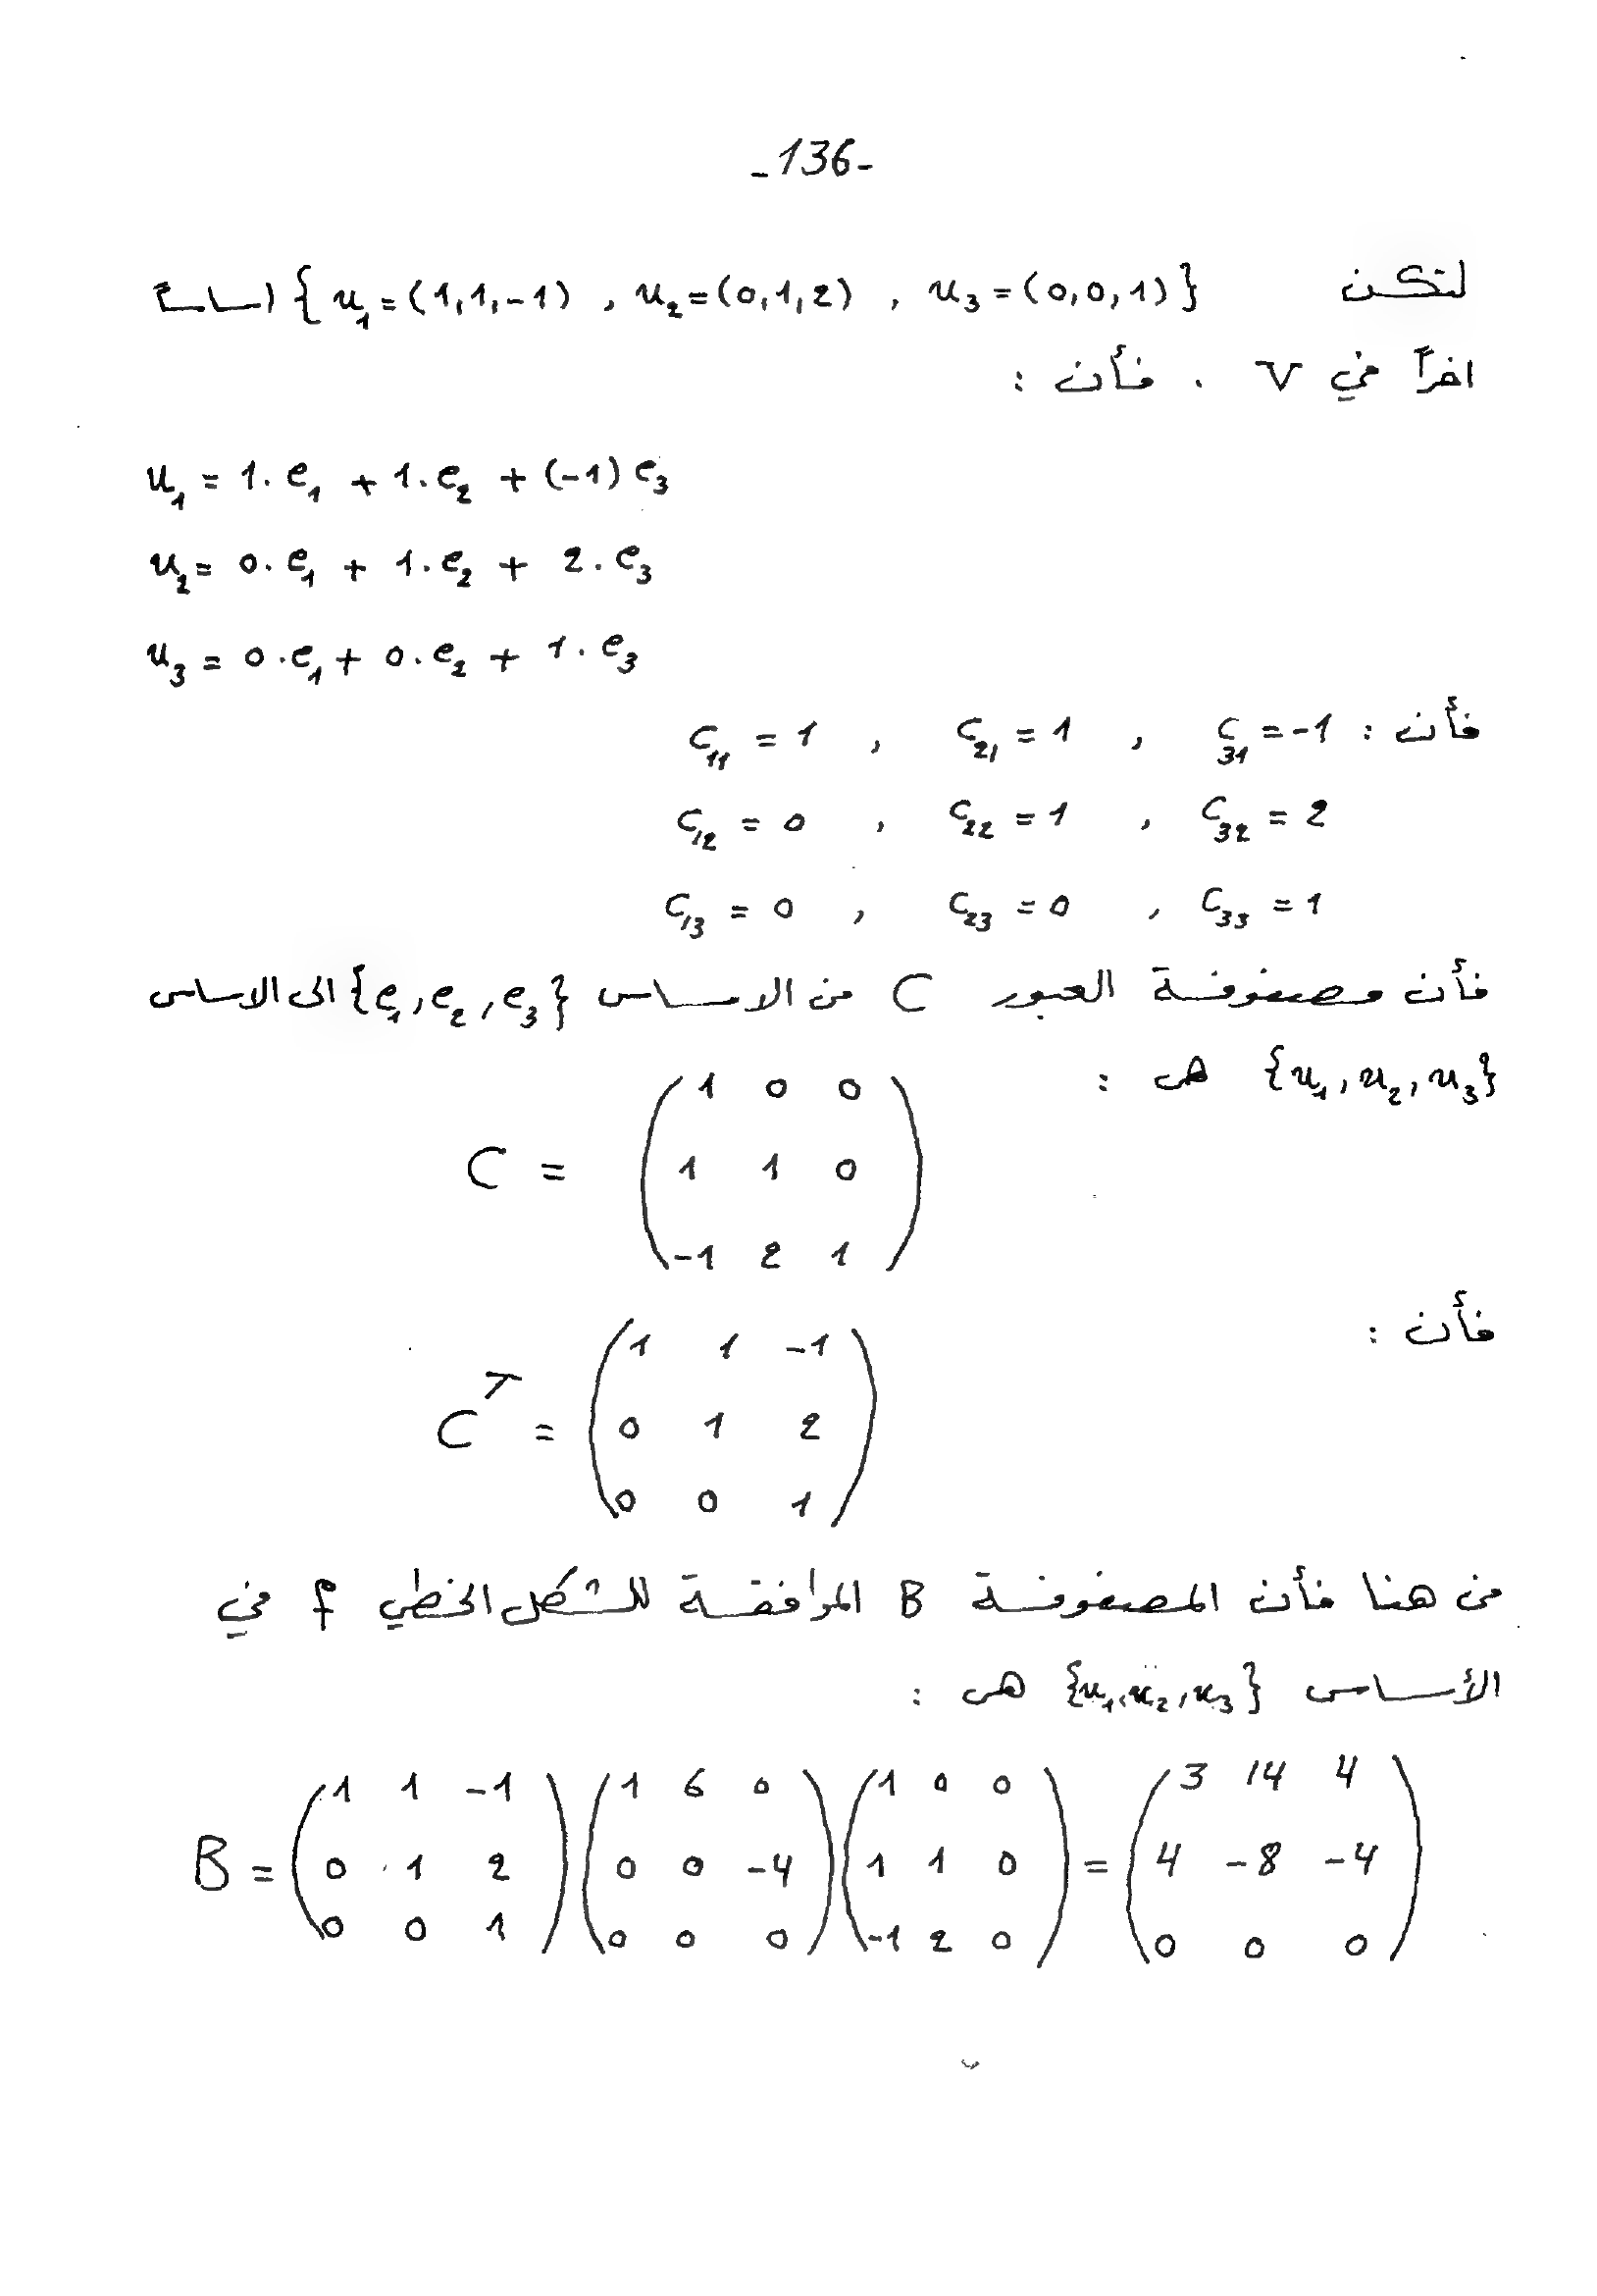 -136-
لتكن { u₁=(1,1,-1) , u₂=(0,1,2) , u₃=(0,0,1) } اساساً
اخراً في V . فأن :
u₁ = 1. e₁ + 1. e₂ + (-1) e₃
u₂ = 0. e₁ + 1. e₂ + 2. e₃
u₃ = 0. e₁ + 0. e₂ + 1. e₃
فأن : C₁₁ = 1 , C₂₁ = 1 , C₃₁ = -1
C₁₂ = 0 , C₂₂ = 1 , C₃₂ = 2
C₁₃ = 0 , C₂₃ = 0 , C₃₃ = 1
فأن مصفوفة العبور C من الاساس {e₁, e₂, e₃} الى الاساس
{u₁, u₂, u₃} هى :
1 0 0
C = 1 1 0
-1 2 1
فأن :
1 1 -1
Cᵀ = 0 1 2
0 0 1
من هنا فأن المصفوفة B الموافقة للشكل الخطي f في
الأساس {u₁, u₂, u₃} هى :
B = (1 1 -1 (1 6 0 (1 0 0 = (3 14 4
0 1 2 0 0 -4 1 1 0 4 -8 -4
0 0 1) 0 0 0) -1 2 0) 0 0 0)